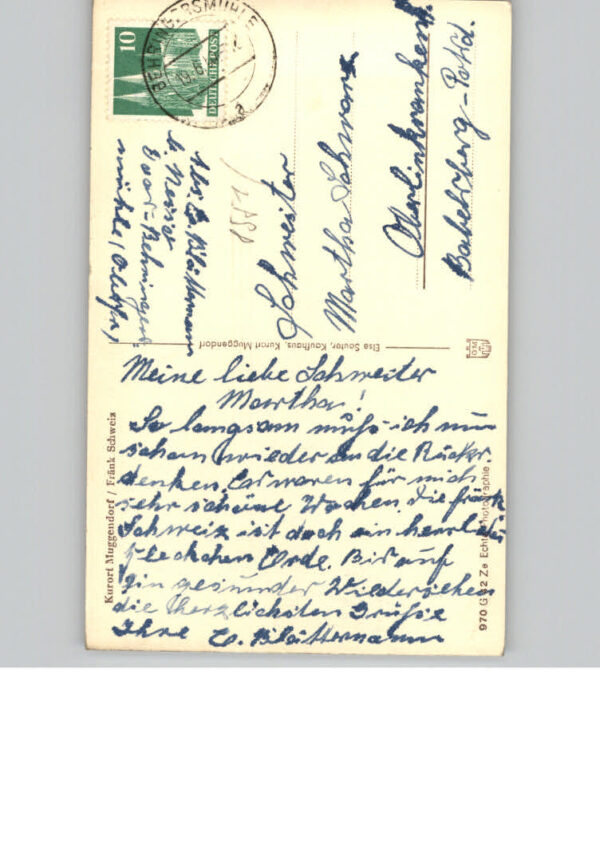 BEHRINGERSMÜHLE
10
DEUTSCHE POST
a
Abs. E. Blättermann
b. Nusser
Schwester
Martha Schwarz
Oberlinkrankenh.
Babelsberg-Potsd.
Elsa Sautor, Kaufhaus, Kurort Muggendorf
Kurort Muggendorf / Fränk Schweiz
Meine liebe Schwester
Martha!
So langsam muß ich nun
schon wieder an die Rückr.
denken. Es waren für mich
sehr schöne Wochen. Die fränk.
Schweiz ist doch ein herrliches
Fleckchen Erde. Bis auf
ein gesundes Wiedersehen
die herzlichsten Grüße
Ihre E. Blättermann
Echte Photographie